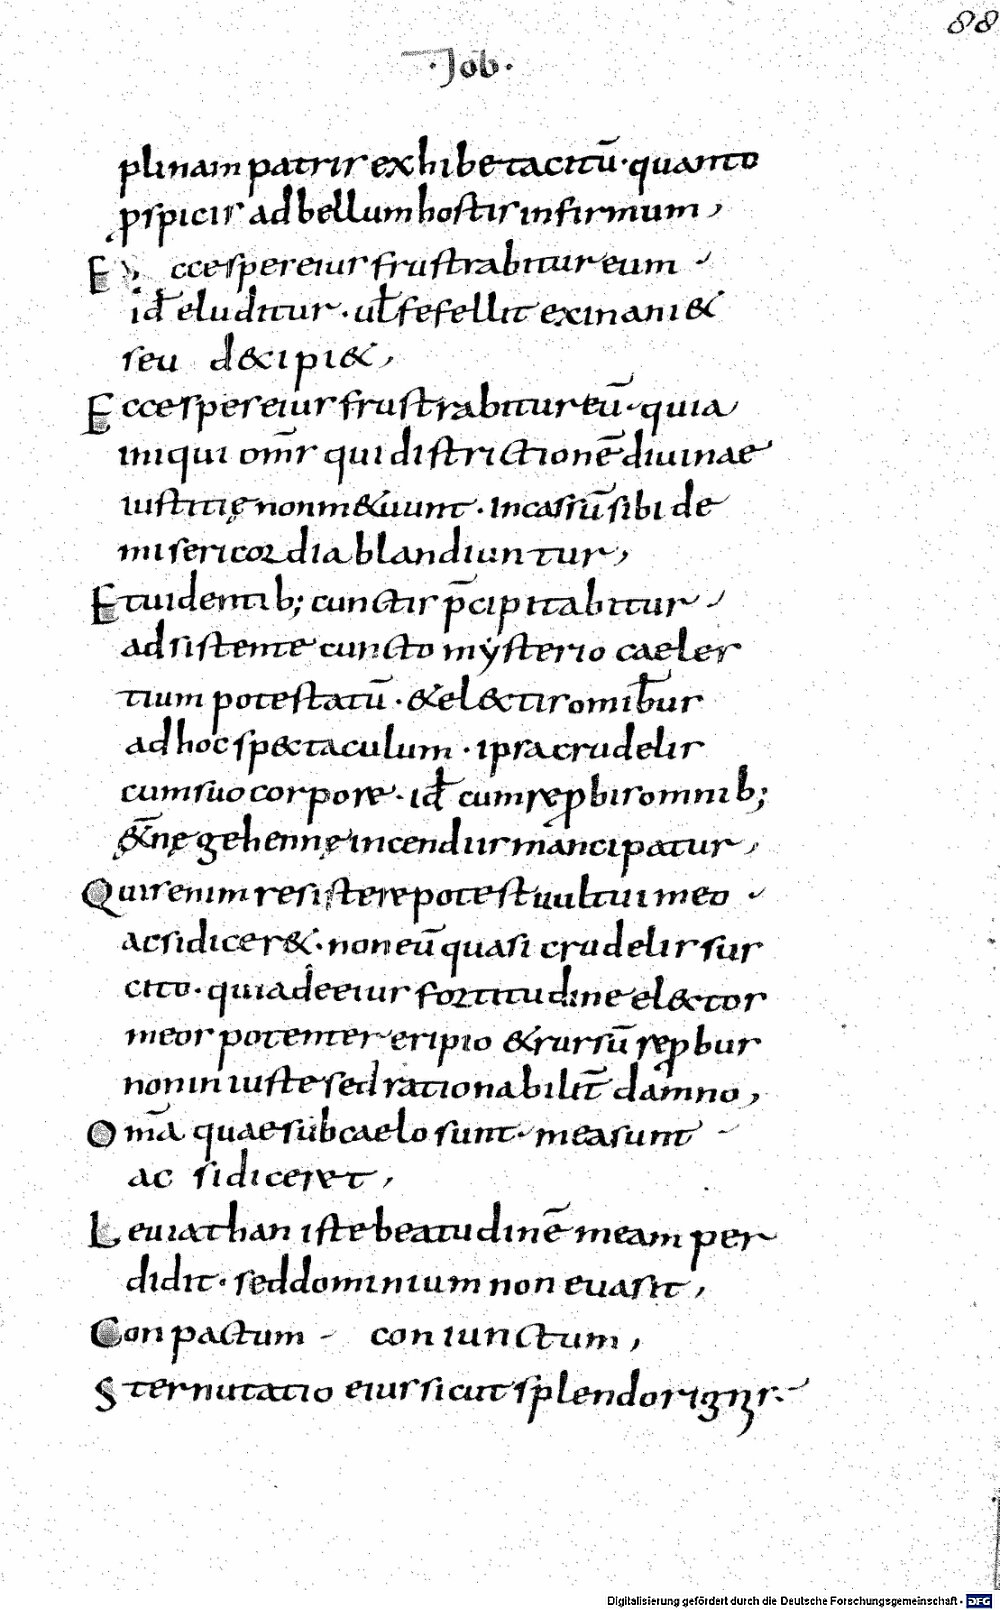 88
·Job·
plinam patris exhibe tacitū· quanto
ꝑspicis ad bellum hostis infirmum,
Ecce spes eius frustrabitur eum
id÷ eluditur· ul̄ fefellit ex inani &
seu d&cipi&,
Ecce spes eius frustrabitur eū· quia
iniqui om̄s qui districtionē diuinae
iustitię non m&uunt· incassū sibi de
misericordia blandiuntur,
Et uidentib; cunctis p̄cipitabitur
adsistente cuncto mẏsterio caeles
tium potestatū· & el&tis omib: us
ad hoc sp&taculum· ipsa crudelis
cum suo corpore· id÷ cum reꝓbis omnib;
&̄nę gehennę incendiis mancipatur,
Quis enim resistere potest uultui meo
ac si dicer&· non eū quasi crudelis sus
cito· quia de eius fortitudine el&tos
meos potenter eripio & rursū reꝓbus
non iniuste sed rationabilit̄ damno,
Om̄a quae sub caelo sunt· mea sunt
ac si diceret,
Leuiathan iste beatudinē meam per
didit· sed dominium non euasit,
Conpactum coniunctum,
Sternutatio eius sicut splendor ignis·